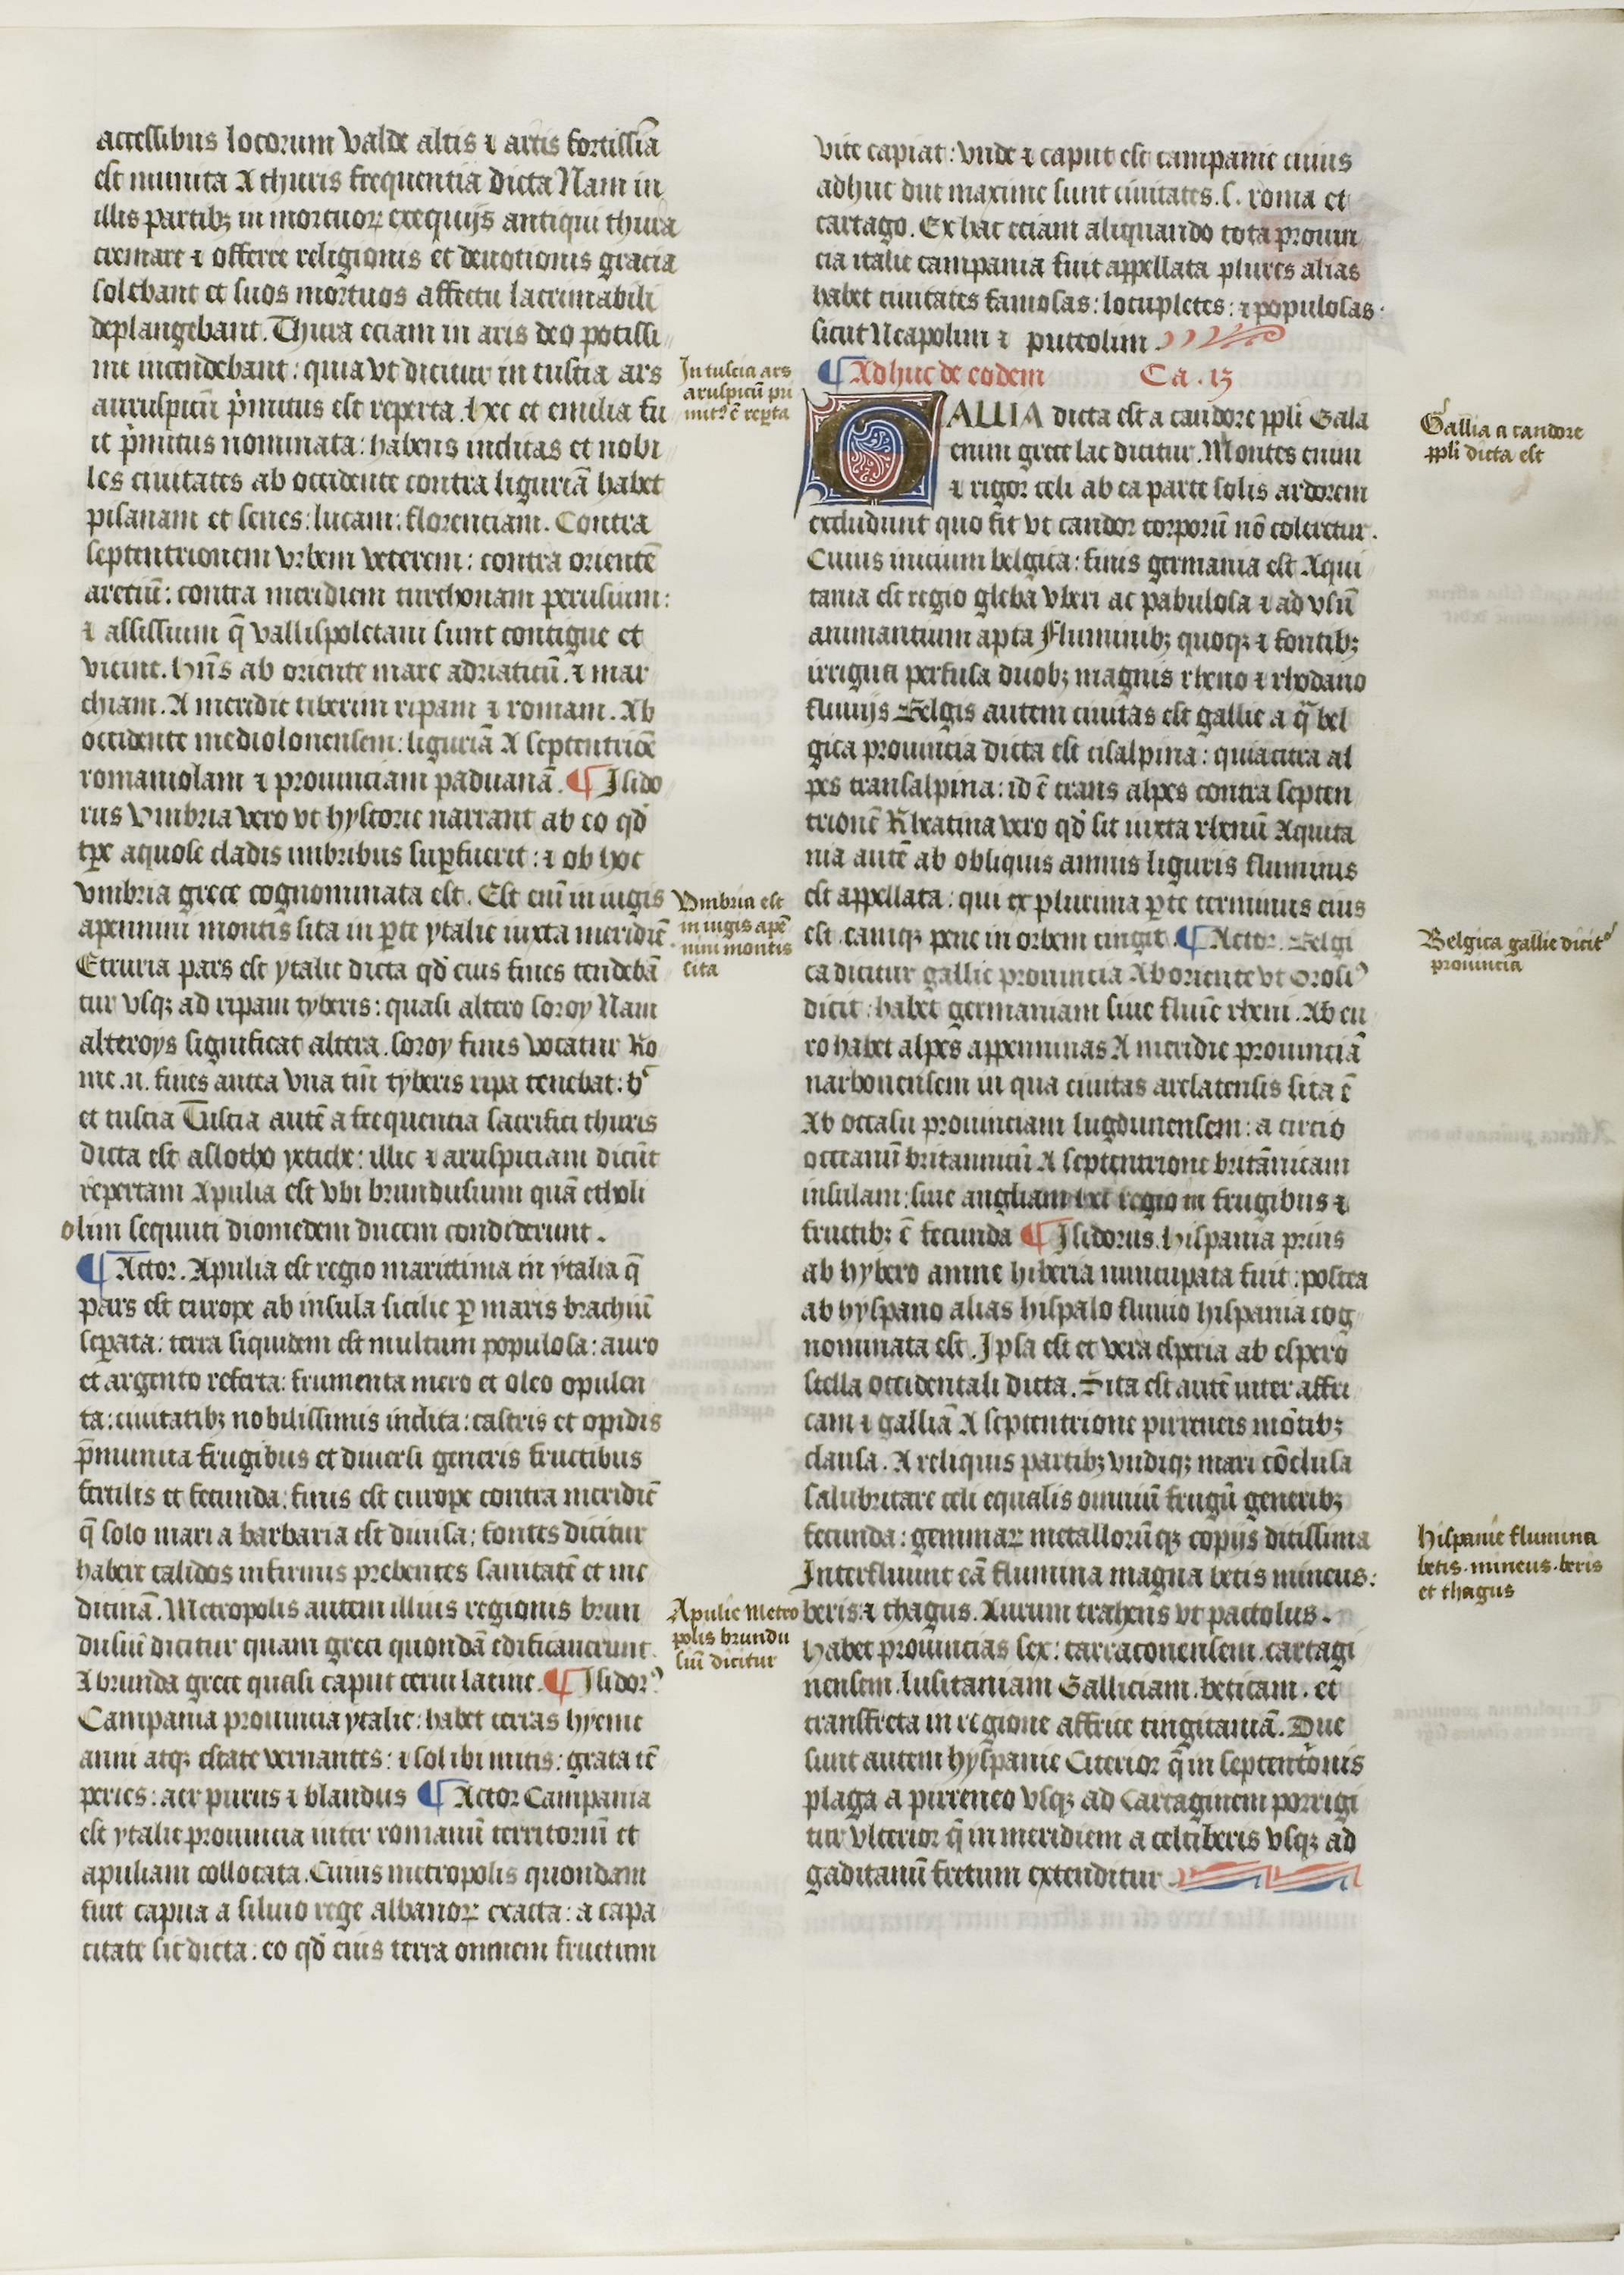 accessibus locorum valde altis ⁊ artis fortissīa
est munita A thuris frequentia dicta Nam in
illis partibꝫ in mortuoꝝ exequijs antiqui thura
cremare ⁊ offerre religionis et deuotionis gracia
solebant et suos mortuos affectu lacrimabili
deplangebant. Thura eciam in aris deo potissi
me incendebant: quia vt dicitur in tuscia ars
auruspicū p̄mitus est reperta. hec et emilia fu
it p̄mitus nominata: habens inclitas et nobi
les ciuitates ab occidente contra liguriā habet
pisanam et senes: lucam: florenciam. Contra
septentrionem vrbem veterem: contra orientē
areciū: contra meridiem turchonam perusium:
⁊ assissium q̄ vallispoletani sunt contigue et
vicine. hn̄s ab oriente mare adriaticū. ⁊ mar
chiam. A meridie tiberim ripam ⁊ romam. Ab
occidente mediolonensem: liguriā A septentriōe
romaniolam ⁊ prouinciam paduanā. ¶ Isido
rus Vmbria vero vt hystorie narrant ab eo qd̓
tꝑe aquose cladis imbribus suꝑfuerit: ⁊ ob hoc
vmbria grece cognominata est. Est eni᷑ in iugis
apennini montis sita in ꝑte ytalie iuxta meridiē
Etruria pars est ytalie dicta qd̓ eius fines tendebā
tur vsqꝫ ad ripam tyberis: quasi altero soroy Nam
alteroys significat altera. soroy finis vocatur Ro
me .n. fines antea vna tm̄ tyberis ripa tenebat: h᷑
et tuscia Tuscia autē a frequentia sacrifici thuris
dicta est allotho yctiche: illic ⁊ aruspiciam dicūt
repertam Apulia est vbi brundusium quā etholi
olim sequuti diomedem ducem condiderunt.
¶ Actor. Apulia est regio marittima in ytalia q̄
pars est europe ab insula sicilie ꝑ maris brachiū
seꝑata: terra siquidem est multum populosa: auro
et argento referta: frumenta mero et oleo opulen
ta: ciuitatibꝫ nobilissimis inclita: castris et opidis
p̄munita frugibus et diuersi generis fructibus
fertilis et fecunda: finis est europe contra meridiē
q̄ solo mari a barbaria est diuisa: fontes dicitur
habere calidos infirmis prebentes sanitatē et me
dicinā. Metropolis autem illius regionis brun
dusiū dicitur quam greci quondā edificauerunt.
A brunda grece quasi caput cerui latine. ¶ Isidorꝰ
Campania prouincia ytalie: habet terras hyeme
anni atqꝫ estate vernantes: ⁊ sol ibi mitis: grata tē
peries: aer purus ⁊ blandus ¶ Actor Campania
est ytalie prouincia inter romanū territoriū et
apuliam collocata. Cuius metropolis quondam
fuit capua a siluio rege albanoꝝ exacta: a capa
citate sic dicta: eo qd̓ eius terra omnem fructum
In tuscia ars
aruspicū pri
mitꝰ ē reꝑta
Vmbria est
in iugis apē
nini montis
sita
Apulie metro
polis brundu
siū dicitur
vite capiat: vnde ⁊ caput est campanie cuius
adhuc due maxime sunt ciuitates. s. roma et
cartago. Ex hac eciam aliquando tota prouin
cia italie campania fuit appellata plures alias
habet ciuitates famosas: locupletes: ⁊ populosas:
sicut Neapolim ⁊ puteolim.
¶ Adhuc de eodem Ca. 13
GALLIA dicta est a candore ppl̓i Gala
enim grece lac dicitur. Montes enim
⁊ rigor celi ab ea parte solis ardorem
excludunt quo fit vt candor corporū nō coleretur.
Cuius inicium belgica: finis germania est Aqui
tania est regio gleba vberi ac pabulosa ⁊ ad vsū
animantium apta Fluminibꝫ quoqꝫ ⁊ fontibꝫ
irrigua perfusa duobꝫ magnis rheno ⁊ rhodano
fluuijs Belgis autem ciuitas est gallie a q̄ bel
gica prouincia dicta est cisalpina: quia citra al
pes transalpina: id ē trans alpes contra septen
trionē Rheatina vero qd̓ sit iuxta rhenū Aquita
nia autē ab obliquis amnis liguris fluminis
est appellata: qui ex plurima ꝑte terminus eius
est. eamqꝫ pene in orbem cingit. ¶ Actor. Belgi
ca dicitur gallie prouincia Ab oriente vt Orosiꝰ
dicit: habet germaniam siue fluuiē rheni. Ab eu
ro habet alpes appenninas A meridie prouinciā
narbonensem in qua ciuitas arelatensis sita ē
Ab occasu prouinciam lugdunensem: a circio
occeanū britannicū A septentrione britānicam
insulam: siue angliam hec regio in frugibus ⁊
fructibꝫ ē fecunda ¶ Isidorus. hispania prius
ab hybero amne hiberia nuncupata fuit: postea
ab hyspano alias hispalo fluuio hispania cog
nominata est. Ipsa est et vera esperia ab espero
stella occidentali dicta. Sita est autē inter affri
cam ⁊ galliā A septentrione pirreneis mōtibꝫ
clausa. A reliquis partibꝫ vndiqꝫ mari cōclusa
salubritate celi equalis omniū frugū generibꝫ
fecunda: gemmaꝝ metallorūqꝫ copijs ditissima
Interfluunt eā flumina magna betis mineus:
beris ⁊ thagus. Aurum trahens vt pactolus.
habet prouincias sex: tarraconensem. cartagi
nensem. lusitaniam Galliciam. beticam. et
transfreta in regione affrice tingitaniā. Due
sunt autem hyspanie Citerior q̄ in septentōnis
plaga a pirreneo vsqꝫ ad Cartaginem porrigi
tur vlterior q̄ in meridiem a celtiberis vsqꝫ ad
gaditanū fretum extenditur
Gallia a candore
ppl̓i dicta est
Belgica gallie dicitᷣ
prouincia
Hispanie flumina
betis. mineus. beris
et thagus